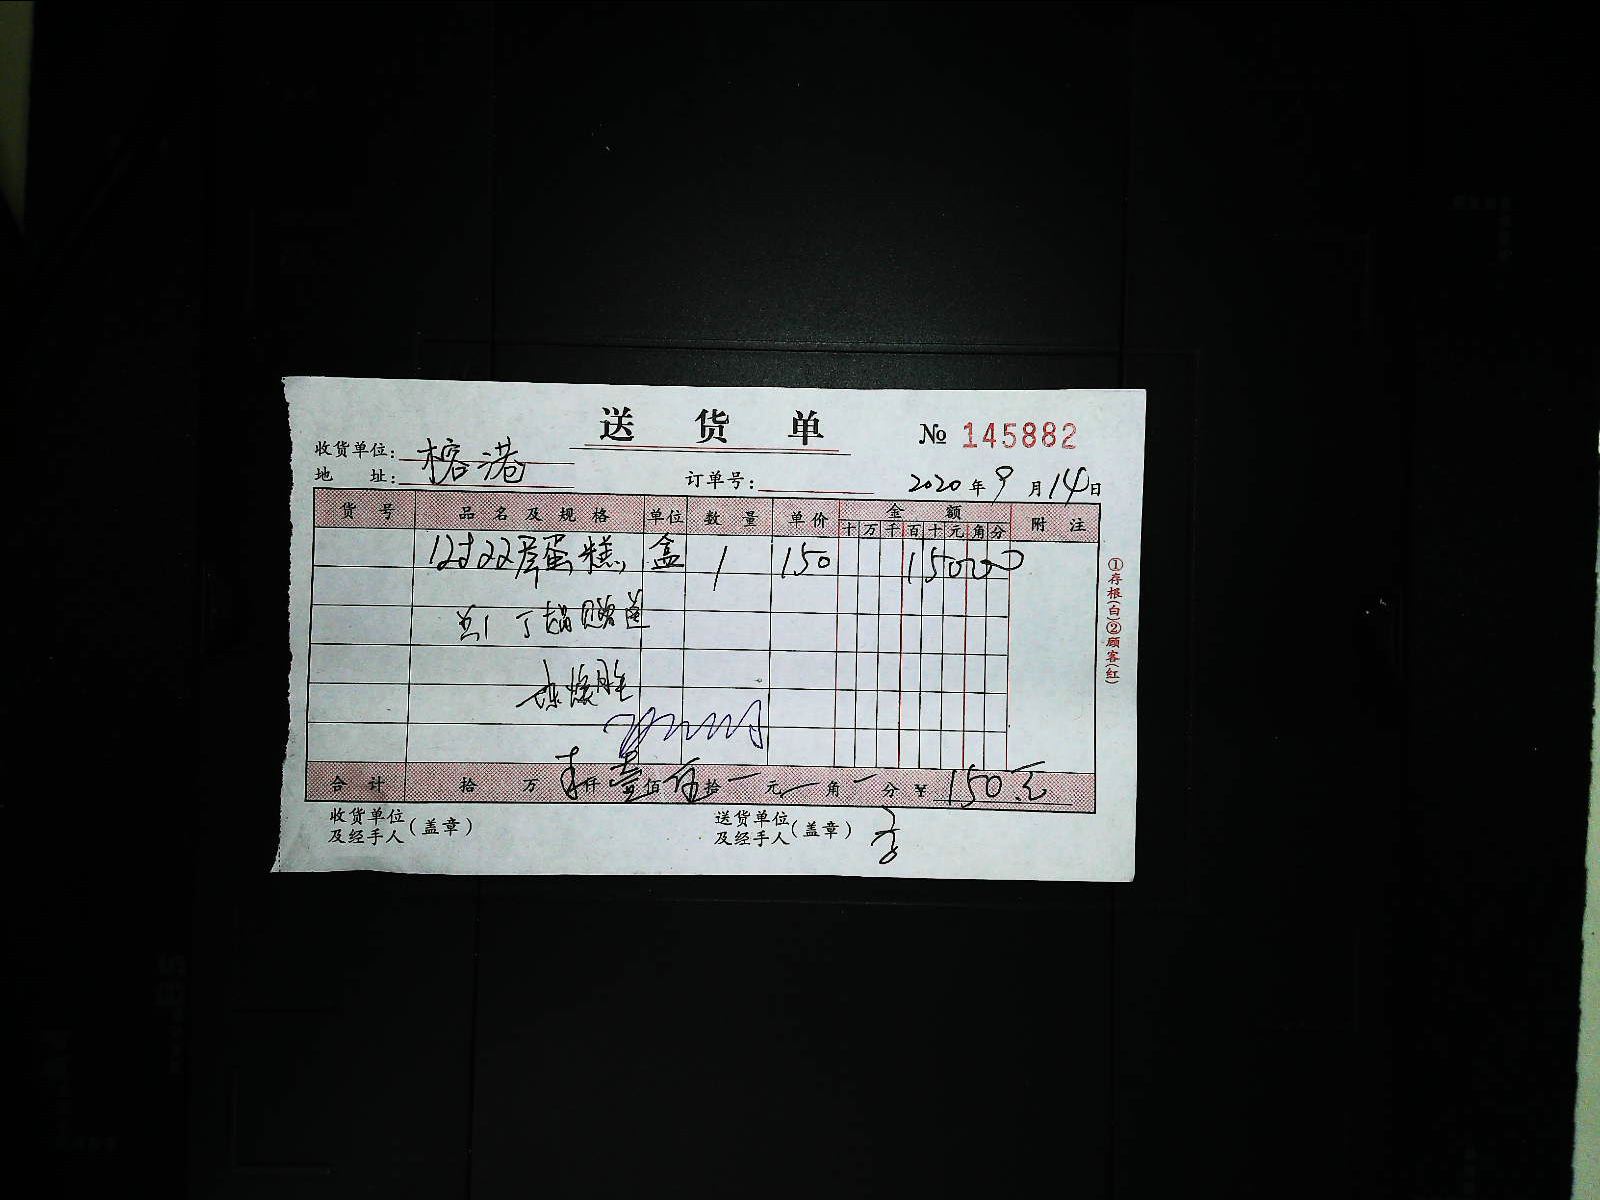 送 货 单
№ 145882
收货单位: 榕港
地 址:
订单号:
2020 年 9 月 14 日
货 号 品 名 及 规 格 单位 数 量 单价 金 额 附 注
十 万 千 百 十 元 角 分
12寸 蛋糕 盒 1 150 15000
合 计 拾 万 仟 壹 佰 伍 拾 一 元 一 角 一 分 ¥ 150元
收货单位
及经手人 (盖章)
送货单位
及经手人 (盖章)
①存根(白)②顾客(红)